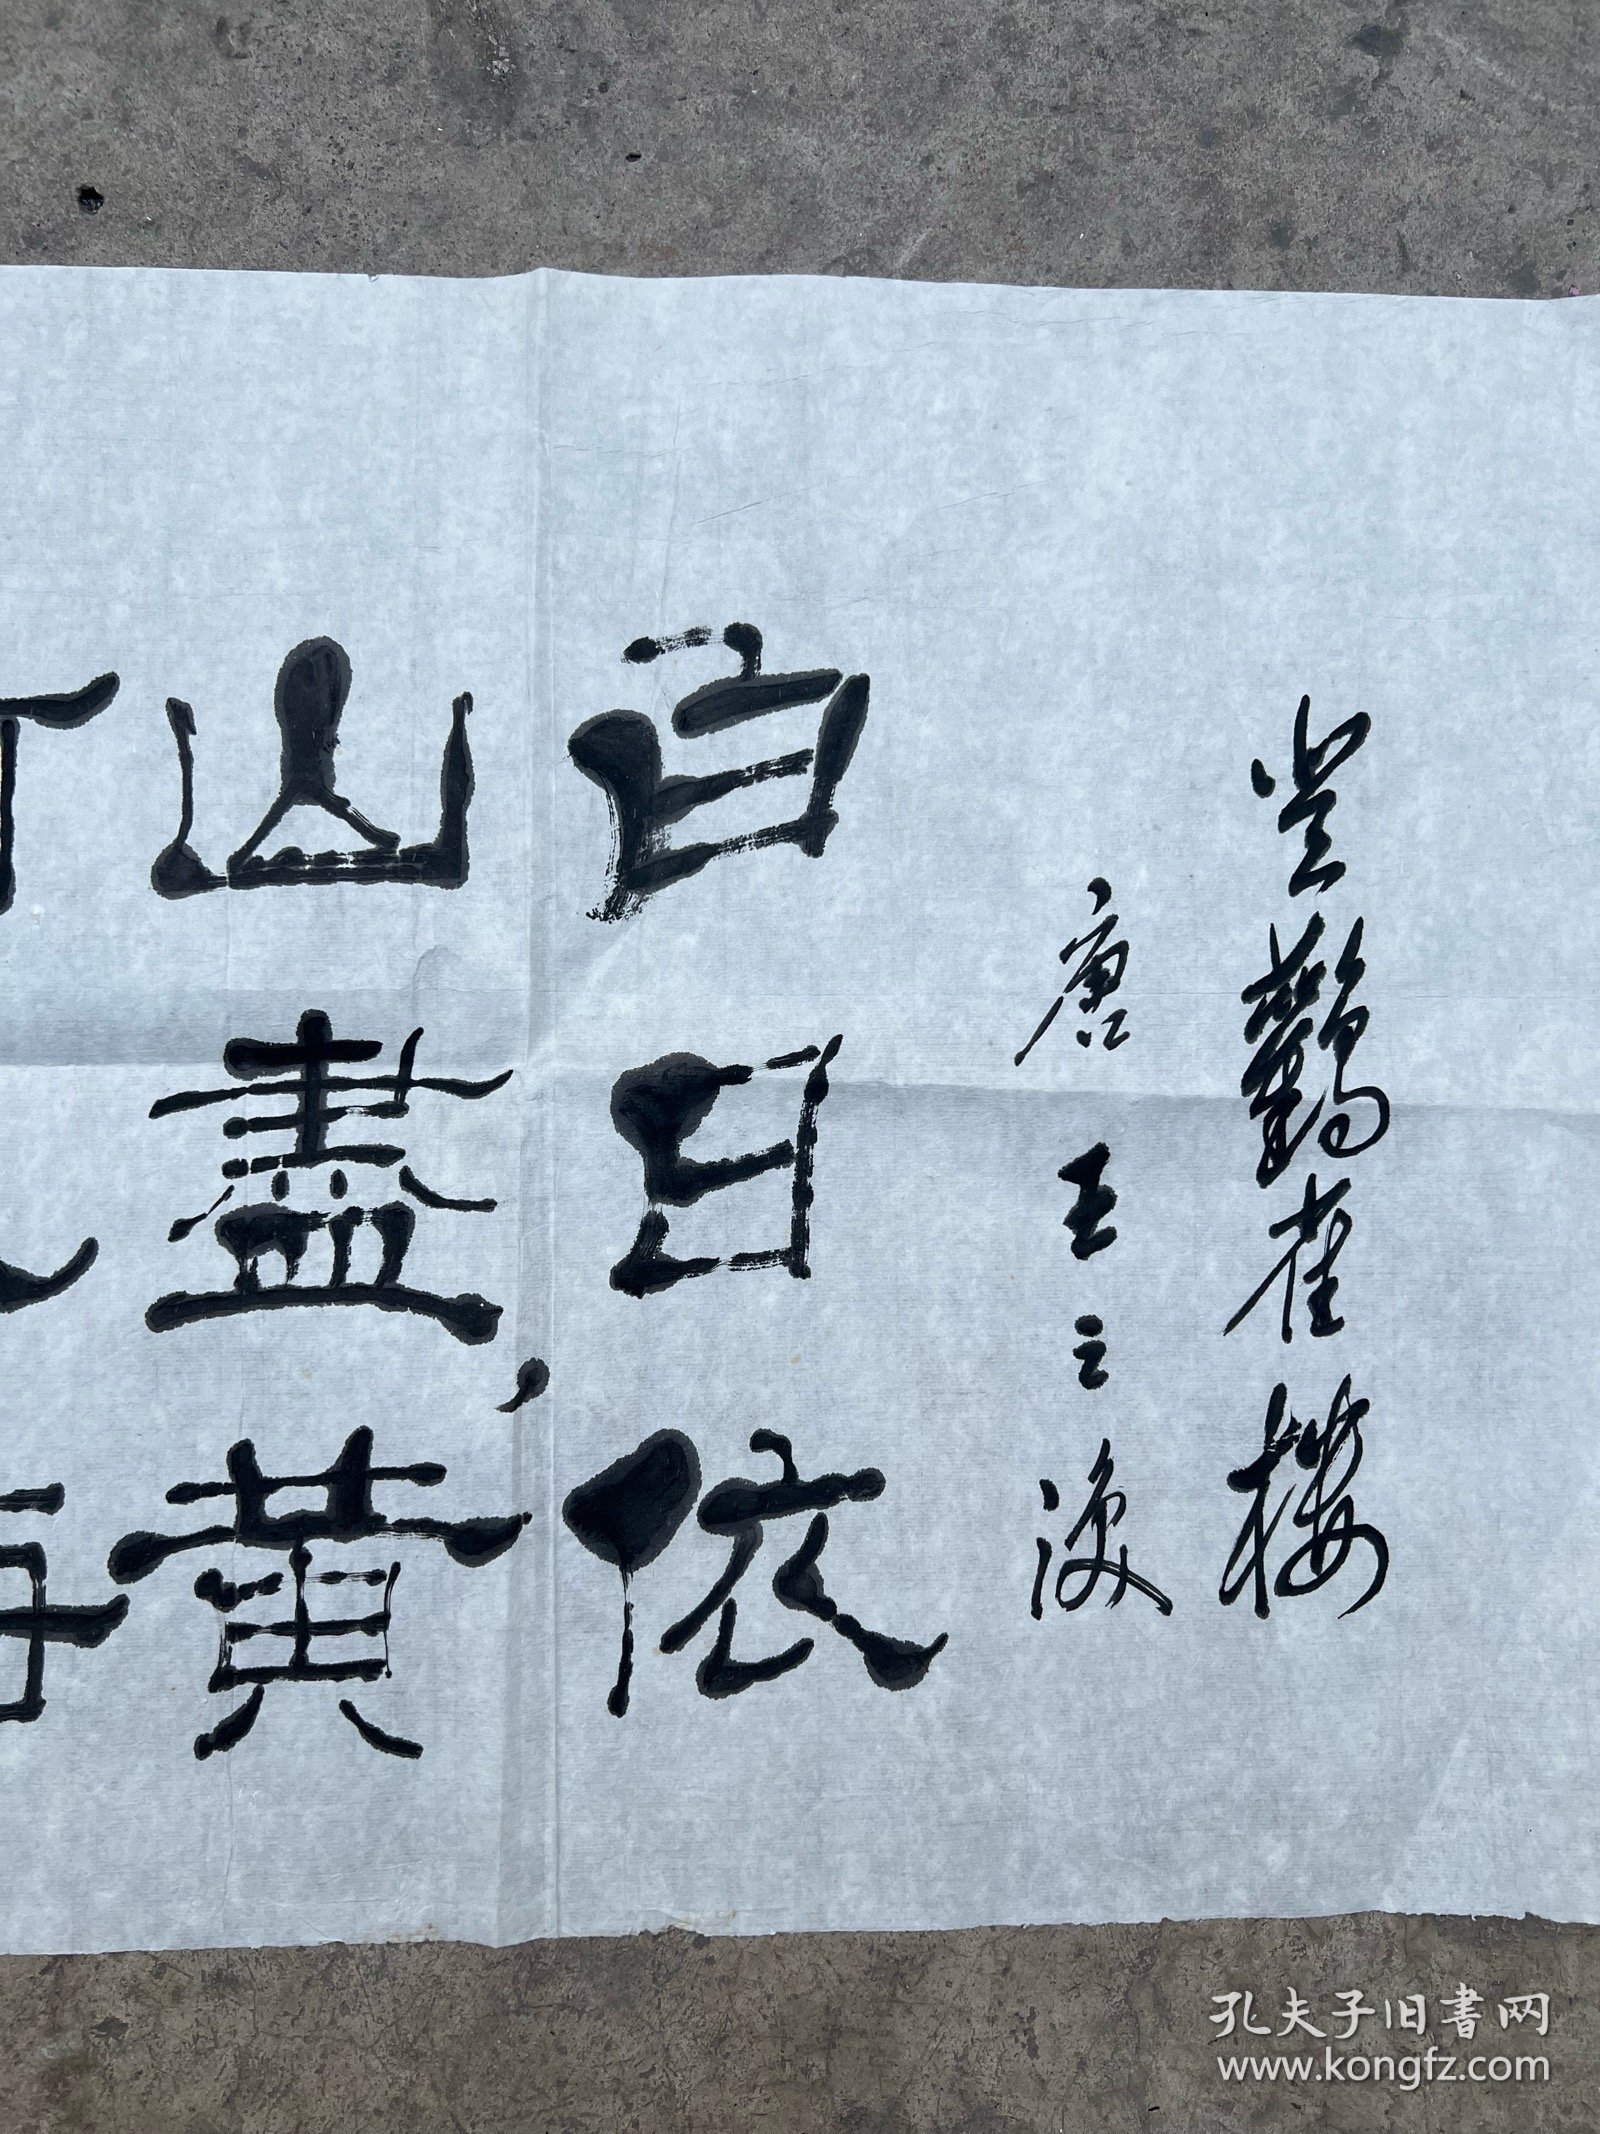 登鸛雀樓
唐王之渙
白日依
山盡，黃
孔夫子旧書网
www.kongfz.com